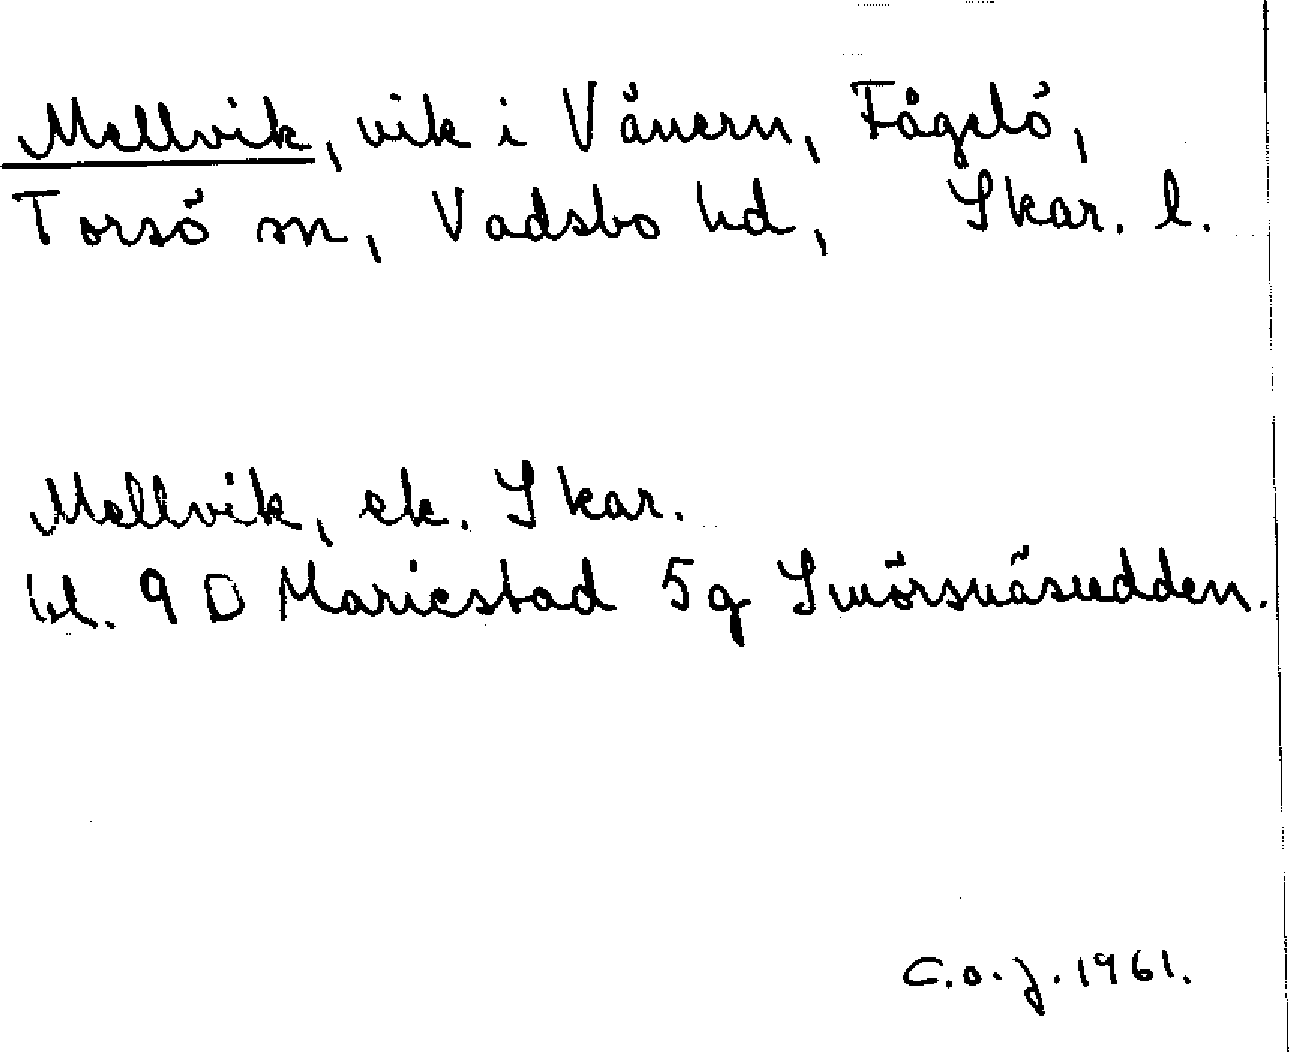 Mellvik, vik i Vänern, Fågelö,
Torsö sn, Vadsbo hd, Skar. l.
Mellvik, ek. Skar.
bl. 9 D Mariestad 5g Smörsnäsudden.
C.o.J. 1961.